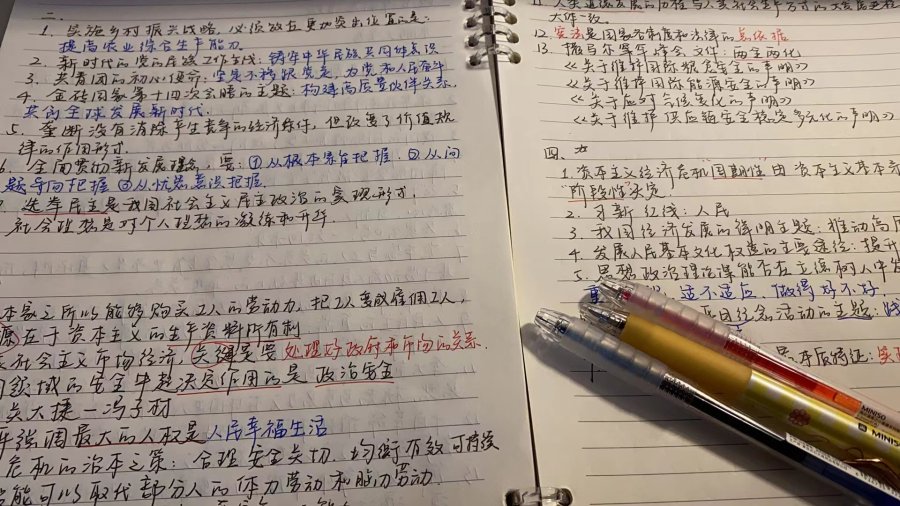 二.
1. 实施乡村振兴战略,必须放在更加突出位置的是:
提高农业综合生产能力.
2. 新时代的党的民族工作主线:铸牢中华民族共同体意识
3. 共青团的初心使命:坚定不移跟党走,为党和人民奋斗
4. 金砖国家第十四次会晤的主题:构建高质量伙伴关系,
共创全球发展新时代.
5. 垄断没有消除产生竞争的经济条件,但改变了价值规
律的作用形式.
6. 全面贯彻新发展理念,要:①从根本宗旨把握.②从问
题导向把握③从忧患意识把握.
选举民主是我国社会主义民主政治的重要形式.
社会理想是对个人理想的凝练和升华.
本家之所以能够购买工人的劳动力,把工人变成雇佣工人,
源在于资本主义的生产资料所有制
社会主义市场经济,关键是要处理好政府和市场的关系.
领域的安全中起决定作用的是政治安全
大捷-冯子材
强调最大的人权是人民幸福生活
危机的治本之策:合理安全关切、均衡有效可持续
能可以取代部分人的体力劳动和脑力劳动.
11. 人类追求发展的历程与人类社会
大体一致.
12. 宪法是国家各制度和法律的总依据
13. 撒马尔罕峰会文件:两主两化
《关于维护国际粮食安全的声明》
《关于维护国际能源安全的声明》
《关于应对气候变化的声明》
《关于维护供应链安全稳定多元化的声明》
四、
1. 资本主义经济危机周期性由资本主义基本矛
阶段性决定.
2. 创新红线:人民
3. 我国经济发展的鲜明主题:推动高质
4. 发展人民基本文化权益的主要途径:提升
5. 思想政治理论课能否在立德树人中发
适不适应、做得好不好.
日纪念活动的主题:
MINISO
MINISO